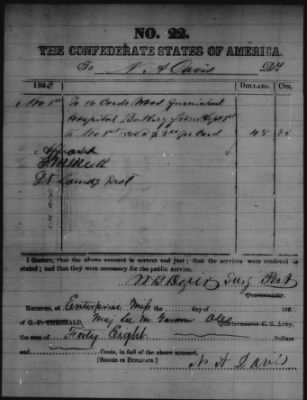 NO. 22.
THE CONFEDERATE STATES OF AMERICA.
To N. A. Davis Dr.
186 DOLLARS. CTS.
Nov 1st To 16 Cords Wood furnished
Hospital from Sept 1st
To Nov 1st @ 3.00 pr Cord 48 00
Approved
Post
I CERTIFY, that the above account is correct and just; that the services were rendered as
stated; and that they were necessary for the public service.
Surg Post
RECEIVED, at Enterprise Miss the day of 186
of G. C. THEOBALD, Maj C. S. Army,
the sum of Forty Eight Dollars
and Cents, in full of the above account.
[SIGNED IN DUPLICATE.] N. A. Davis